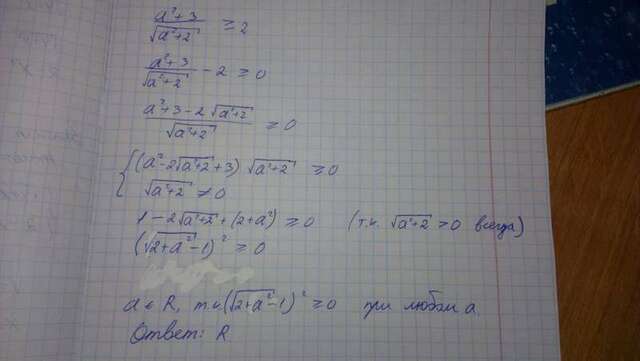 (a²+3)/√(a²+2) ≥ 2
(a²+3)/√(a²+2) - 2 ≥ 0
(a²+3-2√(a²+2))/√(a²+2) ≥ 0
{ (a²-2√(a²+2)+3) √(a²+2) ≥ 0
√(a²+2) ≠ 0
1 - 2√(a²+2) + (2+a²) ≥ 0 (т.к. √(a²+2) ≥ 0 всегда)
(√(2+a²) - 1)² ≥ 0
a ∈ R, т.к (√(2+a²) - 1)² ≥ 0 при любом a.
Ответ: R